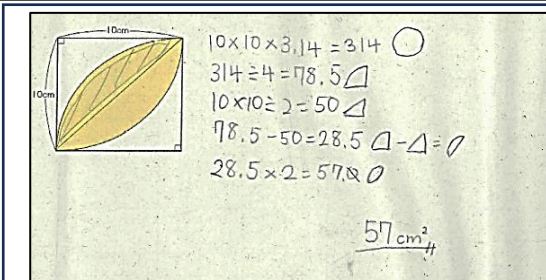 10cm
10cm
10×10×3.14=314
314÷4=78.5
10×10÷2=50
78.5-50=28.5 - =
28.5×2=57
57cm²